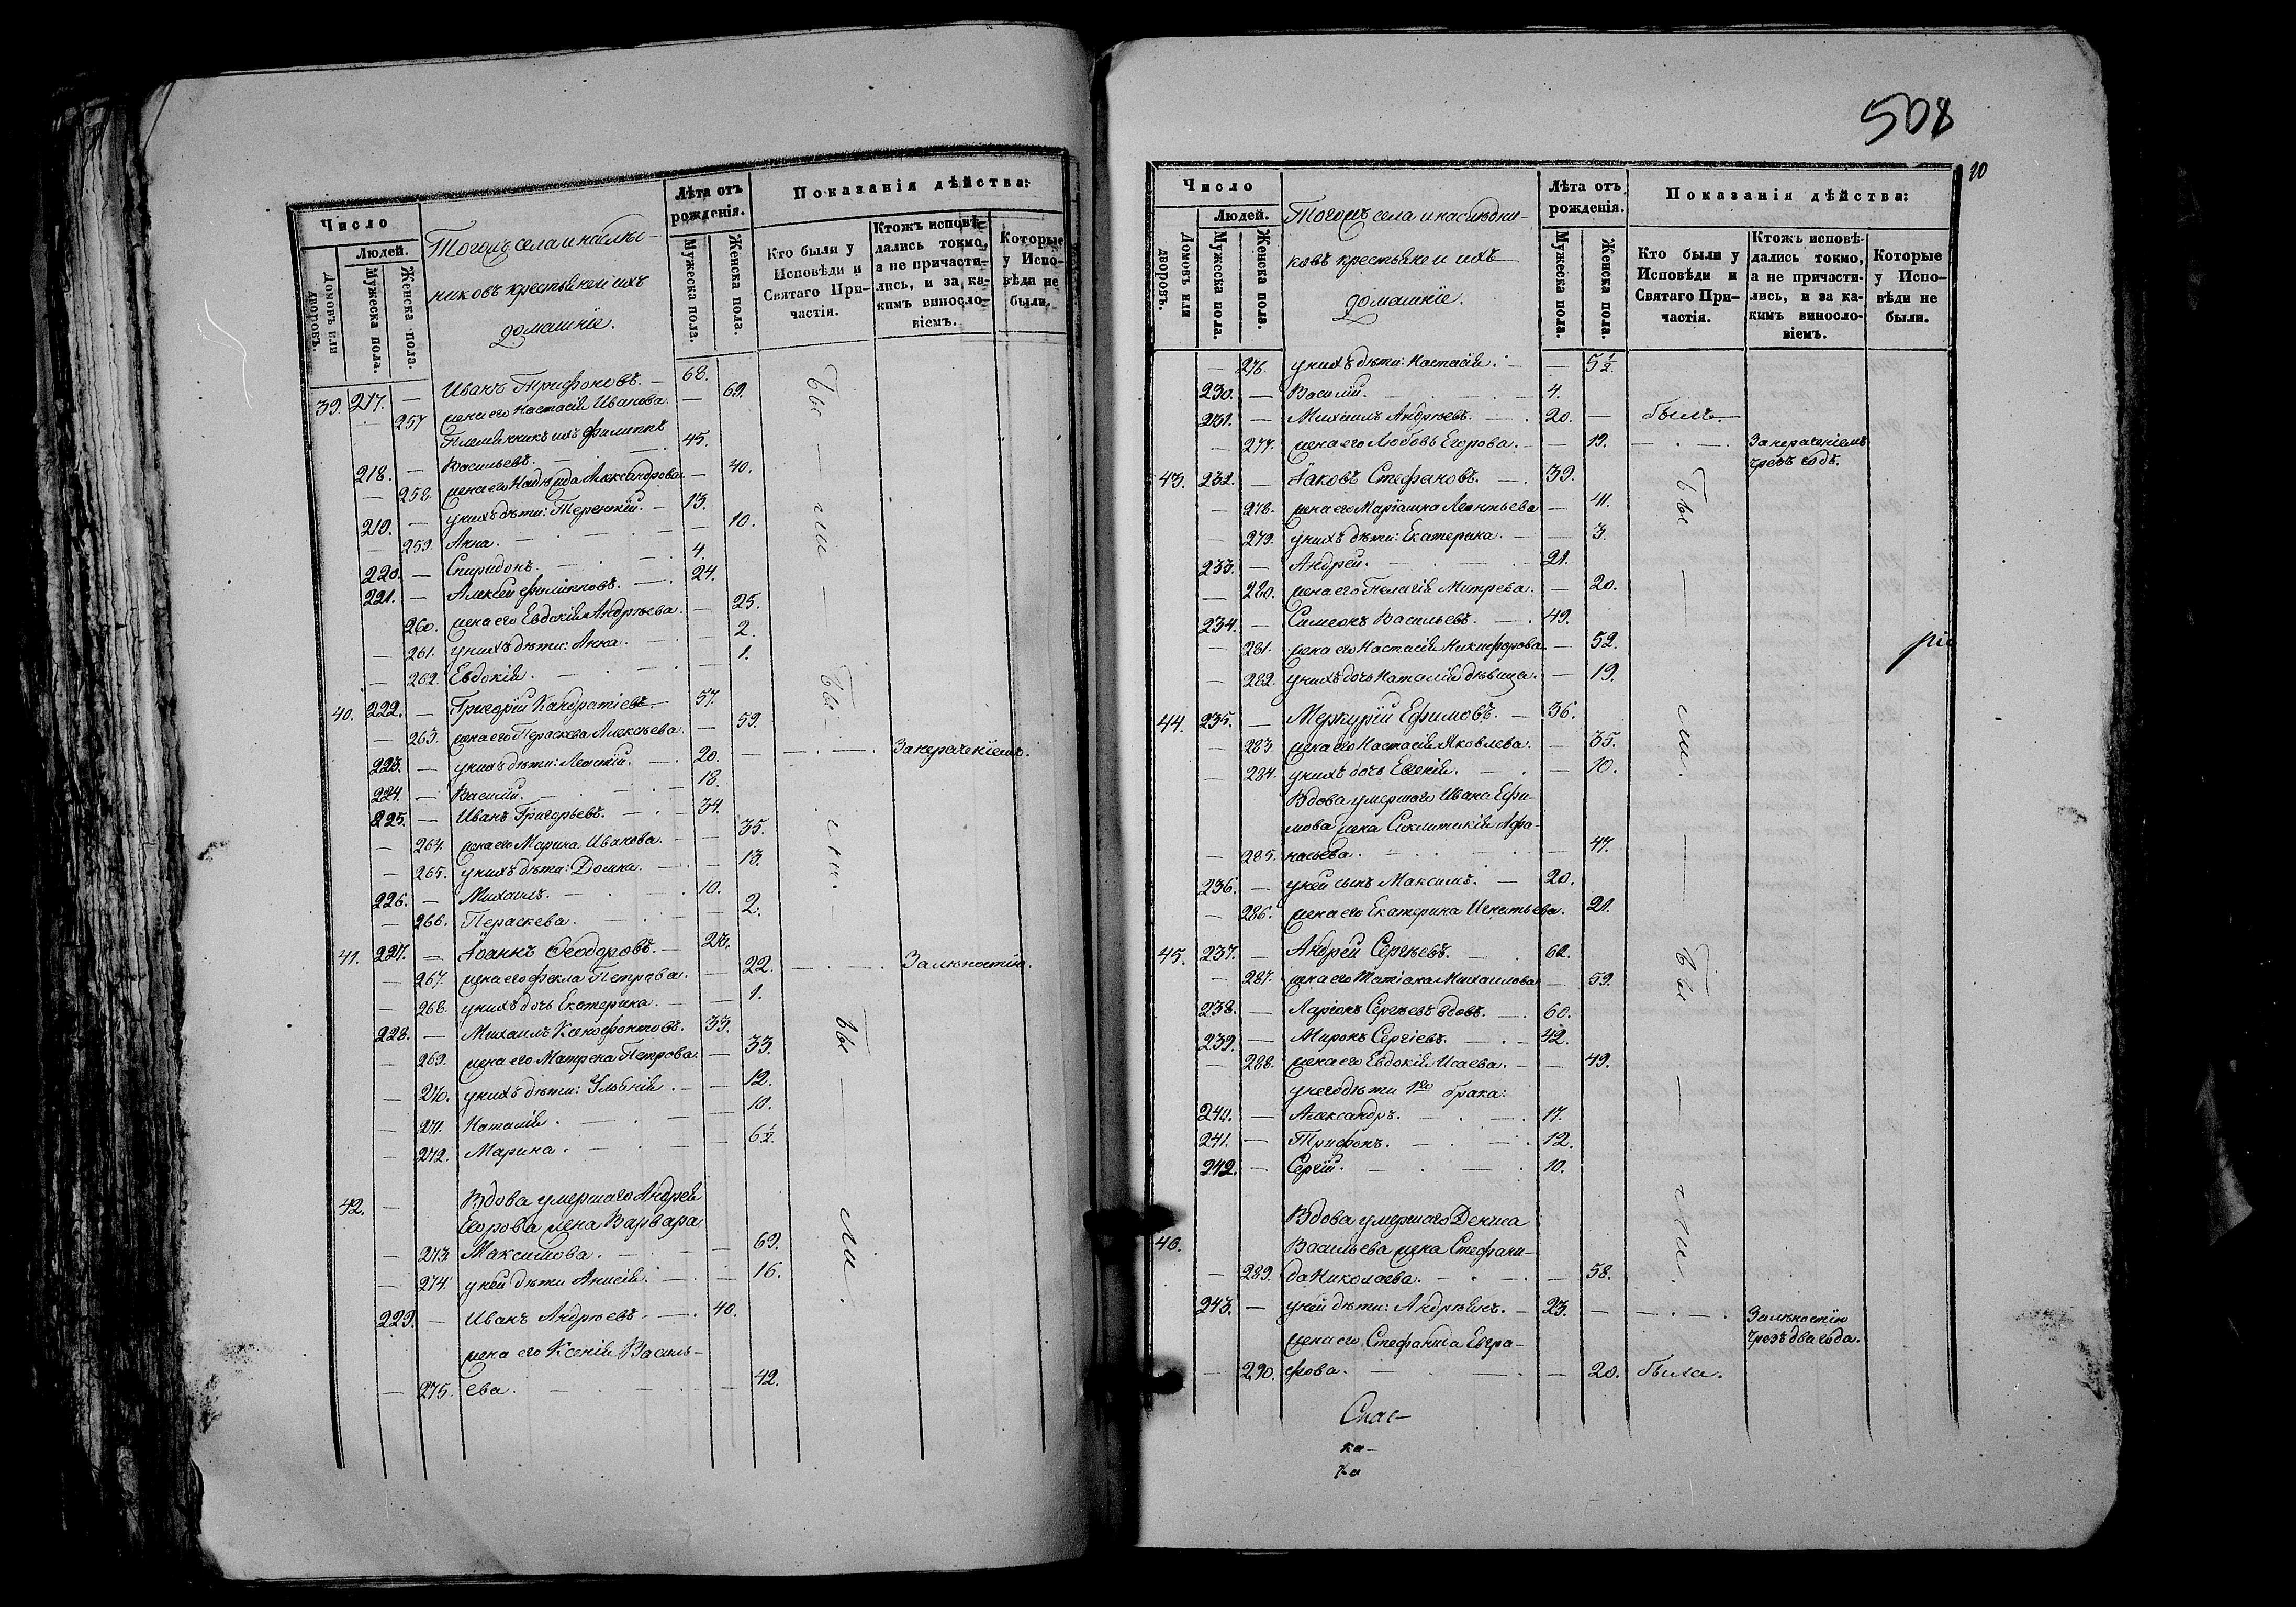 Число
Людей.
Домовъ или дворовъ.
Мужеска пола.
Женска пола.
Тогожъ села и наслѣд-
никовъ крестьяне и ихъ
домашніе.
Лѣта отъ рожденія.
Мужеска пола.
Женска пола.
Показанія дѣйства:
Кто были у Исповѣди и Святаго Причастія.
Ктожъ исповѣдались токмо, а не причастились, и за какимъ винословіемъ.
Которые у Исповѣди не были.
39. 217. — Иванъ Трифоновъ. — 68.
— 257 жена его Настасія Иванова. — 69.
Племянникъ ихъ Филиппъ
218. — Васильевъ. 45.
— 258. жена его Надежда Александрова. — 40.
219. — у нихъ дѣти: Терентій. — 13.
— 259. Анна. — 10.
220. — Спиридонъ. 4.
221. — Алексѣй Филипповъ. — 24.
260. жена его Евдокія Андрѣева. — 25.
— 261. у нихъ дѣти: Анна. — 2.
— 262. Евдокія. — 1.
Бы — ли —
40. 222. — Григорій Кандратіевъ. — 57.
— 263. жена его Пераскева Алексѣева. — 59.
223. — у нихъ дѣти: Леонтій. — 20. — . — . За нераченіемъ.
224. — Василій. — 18.
225. — Иванъ Григорьевъ. — 34.
— 264. жена его Марина Иванова. — 35.
— 265. у нихъ дѣти: Домна. — 13.
226. — Михаилъ. — 10.
— 266. Пераскева. — 2.
Бы — ли. —
41. 227. — Іоаннъ Ѳеодоровъ. — 23.
— 267. жена его Фекла Петрова. — 22. — . — . За лѣностію.
— 268. у нихъ дочь Екатерина. — 1.
228. — Михаилъ Ксенофонтовъ. 33.
— 269. жена его Матрена Петрова. — 33.
— 270. у нихъ дѣти: Ульянія. — 12.
— 271. Наталія. — 10.
— 272. Марина. — 6½.
42. — Вдова умершаго Андрея
Егорова жена Варвара
— 273 Максимова. — 69.
— 274. у ней дѣти Анисія. — 16.
229. — Иванъ Андрѣевъ. — 40.
жена его Ксенія Василь-
— 275. ева. — 42.
Бы — ли.
508
20
Число
Людей.
Домовъ или дворовъ.
Мужеска пола.
Женска пола.
Тогожъ села и наслѣдни-
ковъ крестьяне и ихъ
домашніе.
Лѣта отъ рожденія.
Мужеска пола.
Женска пола.
Показанія дѣйства:
Кто были у Исповѣди и Святаго Причастія.
Ктожъ исповѣдались токмо, а не причастились, и за какимъ винословіемъ.
Которые у Исповѣди не были.
— 276. у нихъ дѣти: Настасія. — 5½.
230. — Василій. — 4.
231. — Михаилъ Андрѣевъ. — 20. — былъ —
— 277. жена его Любовь Егорова. — 19. — . — . За нераченіемъ
чрезъ годъ.
43. 232. — Іаковъ Стефановъ. — 39.
— 278. жена его Маріамна Леонтьева — 41.
— 279. у нихъ дѣти: Екатерина. — 3.
233. — Андрей. — 21.
— 280. жена его Пелагія Митрева. — 20.
234. — Симеонъ Васильевъ. — 49.
— 281. жена его Настасія Никифорова. — 52.
— 282. у нихъ дочь Наталія дѣвица. — 19.
44. 235. — Меркурій Ефимовъ. — 36.
— 283. жена его Настасія Яковлева. — 35.
— 284. у нихъ дочь Евгенія. — 10.
Вдова умершаго Ивана Ефи-
мова жена Афа-
— 285. насьева. — 47.
236. — у ней сынъ Максимъ. — 20.
— 286. жена его Екатерина Игнатьева. 21.
Бы — ли. —
45. 237. — Андрей Сергѣевъ. — 62.
— 287. жена его Татіана Михаилова — 59.
238. — Ларіонъ Сергѣевъ вдовъ. — 60.
239. — Миронъ Сергіевъ. — 42.
— 288. жена его Евдокія Исаева. — 49.
у него дѣти 1го брака:
240. — Александръ. — 17.
241. — Трифонъ. — 12.
242. — Сергій. — 10.
46. Вдова умершаго Дениса
Васильева жена Стефани-
— 289. да Николаева. — 58.
Бы — ли.
243. — у ней дѣти: Андріянъ. — 23. — . — . За лѣностію
чрезъ два года.
жена его Стефанида Евгра-
— 290. фова. — 20. была.
Спас-
ка-